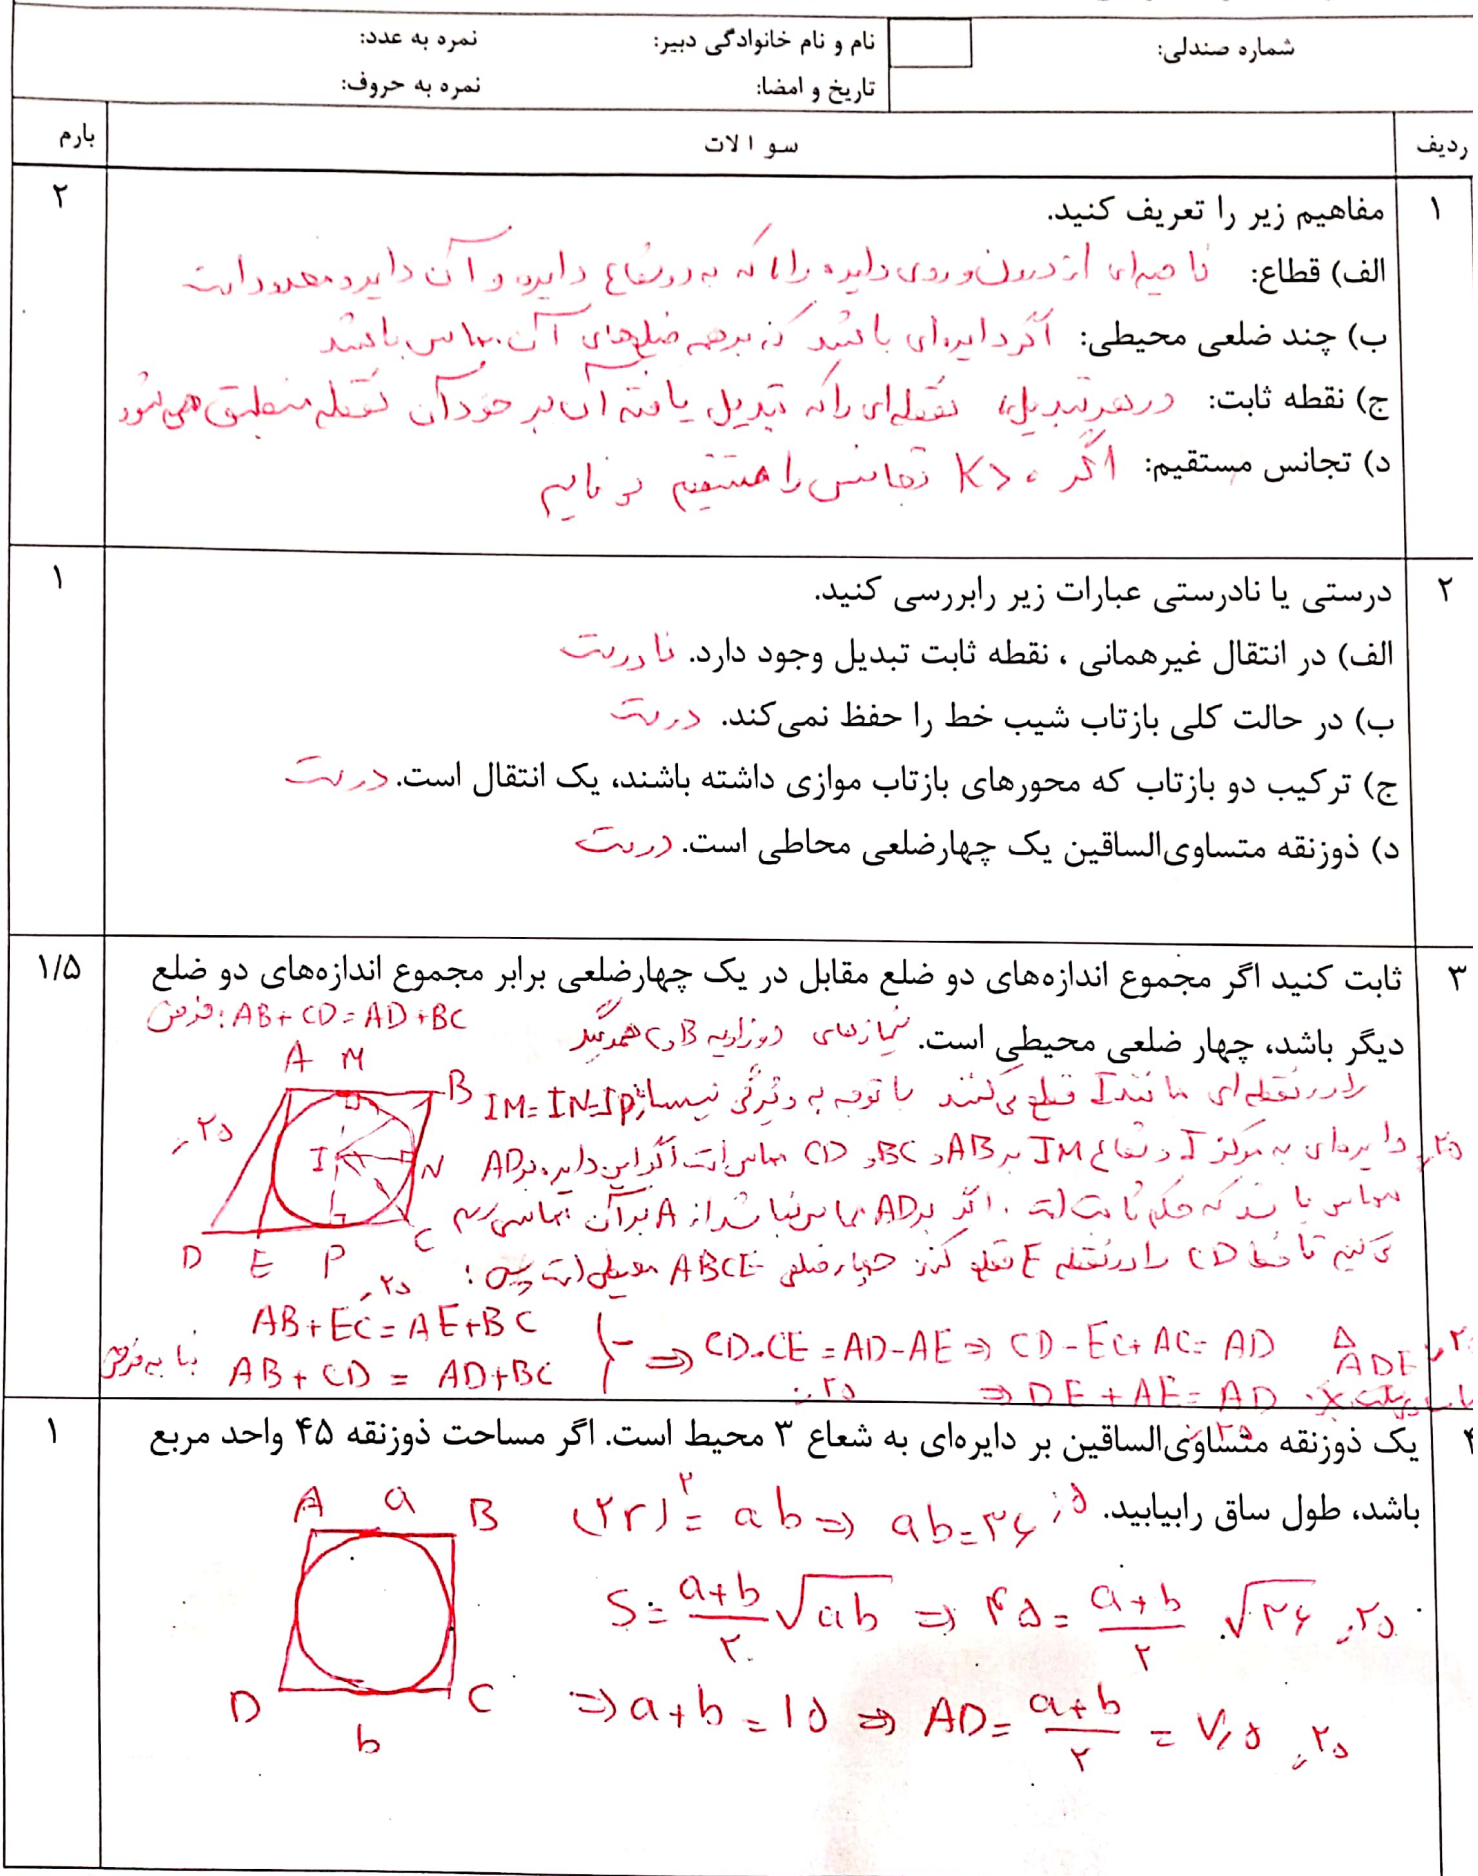 شماره صندلی:
نام و نام خانوادگی دبیر:
نمره به عدد:
تاریخ و امضا:
نمره به حروف:
ردیف
سوالات
بارم
۱
مفاهیم زیر را تعریف کنید.
۲
الف) قطاع: ناحیه‌ای از درون و روی دایره را که به دو شعاع دایره و آن دایره محدود است
ب) چند ضلعی محیطی: اگر دایره‌ای باشد که بر همه ضلع‌های آن مماس باشد
ج) نقطه ثابت: در هر تبدیل، نقطه‌ای را که تبدیل یافته آن بر خود آن نقطه منطبق می‌شود
د) تجانس مستقیم: اگر K>۰ تجانس را مستقیم می‌نامیم
۲
درستی یا نادرستی عبارات زیر رابررسی کنید.
۱
الف) در انتقال غیرهمانی ، نقطه ثابت تبدیل وجود دارد. نادرست
ب) در حالت کلی بازتاب شیب خط را حفظ نمی‌کند. درست
ج) ترکیب دو بازتاب که محورهای بازتاب موازی داشته باشند، یک انتقال است. درست
د) ذوزنقه متساوی‌الساقین یک چهارضلعی محاطی است. درست
۳
ثابت کنید اگر مجموع اندازه‌های دو ضلع مقابل در یک چهارضلعی برابر مجموع اندازه‌های دو ضلع
۱/۵
دیگر باشد، چهار ضلعی محیطی است. نیمسازهای دو زاویه B و C همدیگر
فرض: AB+CD=AD+BC
را در نقطه‌ای مانند I قطع می‌کنند با توجه به ویژگی نیمساز IM=IN=IP
دایره‌ای به مرکز I و شعاع IM بر AB و BC و CD مماس است اگر این دایره بر AD
مماس باشد که حکم ثابت است. اگر بر AD مماس نباشد از A بر آن مماسی رسم
می‌کنیم تا خط CD را در نقطه E قطع کند چهارضلعی ABCE محیطی است پس:
A M B
I N
D E P C
۰٫۲۵
۰٫۲۵
۰٫۲۵
AB+EC=AE+BC
بنا به فرض AB+CD = AD+BC
⇒ CD-CE=AD-AE ⇒ CD-EC+AC=AD
⇒ DE+AE=AD
ADE
۰٫۲۵
یک ذوزنقه متساوی‌الساقین بر دایره‌ای به شعاع ۳ محیط است. اگر مساحت ذوزنقه ۴۵ واحد مربع
۱
باشد، طول ساق رابیابید. (۲r)²=ab ⇒ ab=۳۶ ۰٫۵
A a B
D b C
S=a+b/۲ √ab ⇒ ۴۵=a+b/۲ . √۳۶ ۰٫۲۵
⇒ a+b=۱۵ ⇒ AD=a+b/۲=۷٫۵ ۰٫۲۵